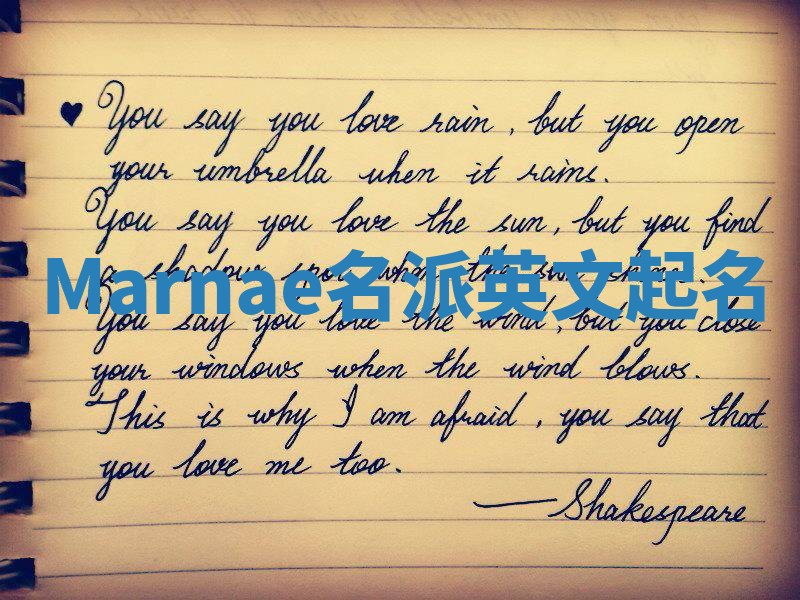 ♥ You say you love rain, but you open
your umbrella when it rains.
You say you love the sun, but you find
a shadow spot when the sun shines.
Marnae名派英文起名
You say you love the wind, but you close
your windows when the wind blows.
This is why I am afraid, you say that
you love me too.
— Shakespeare